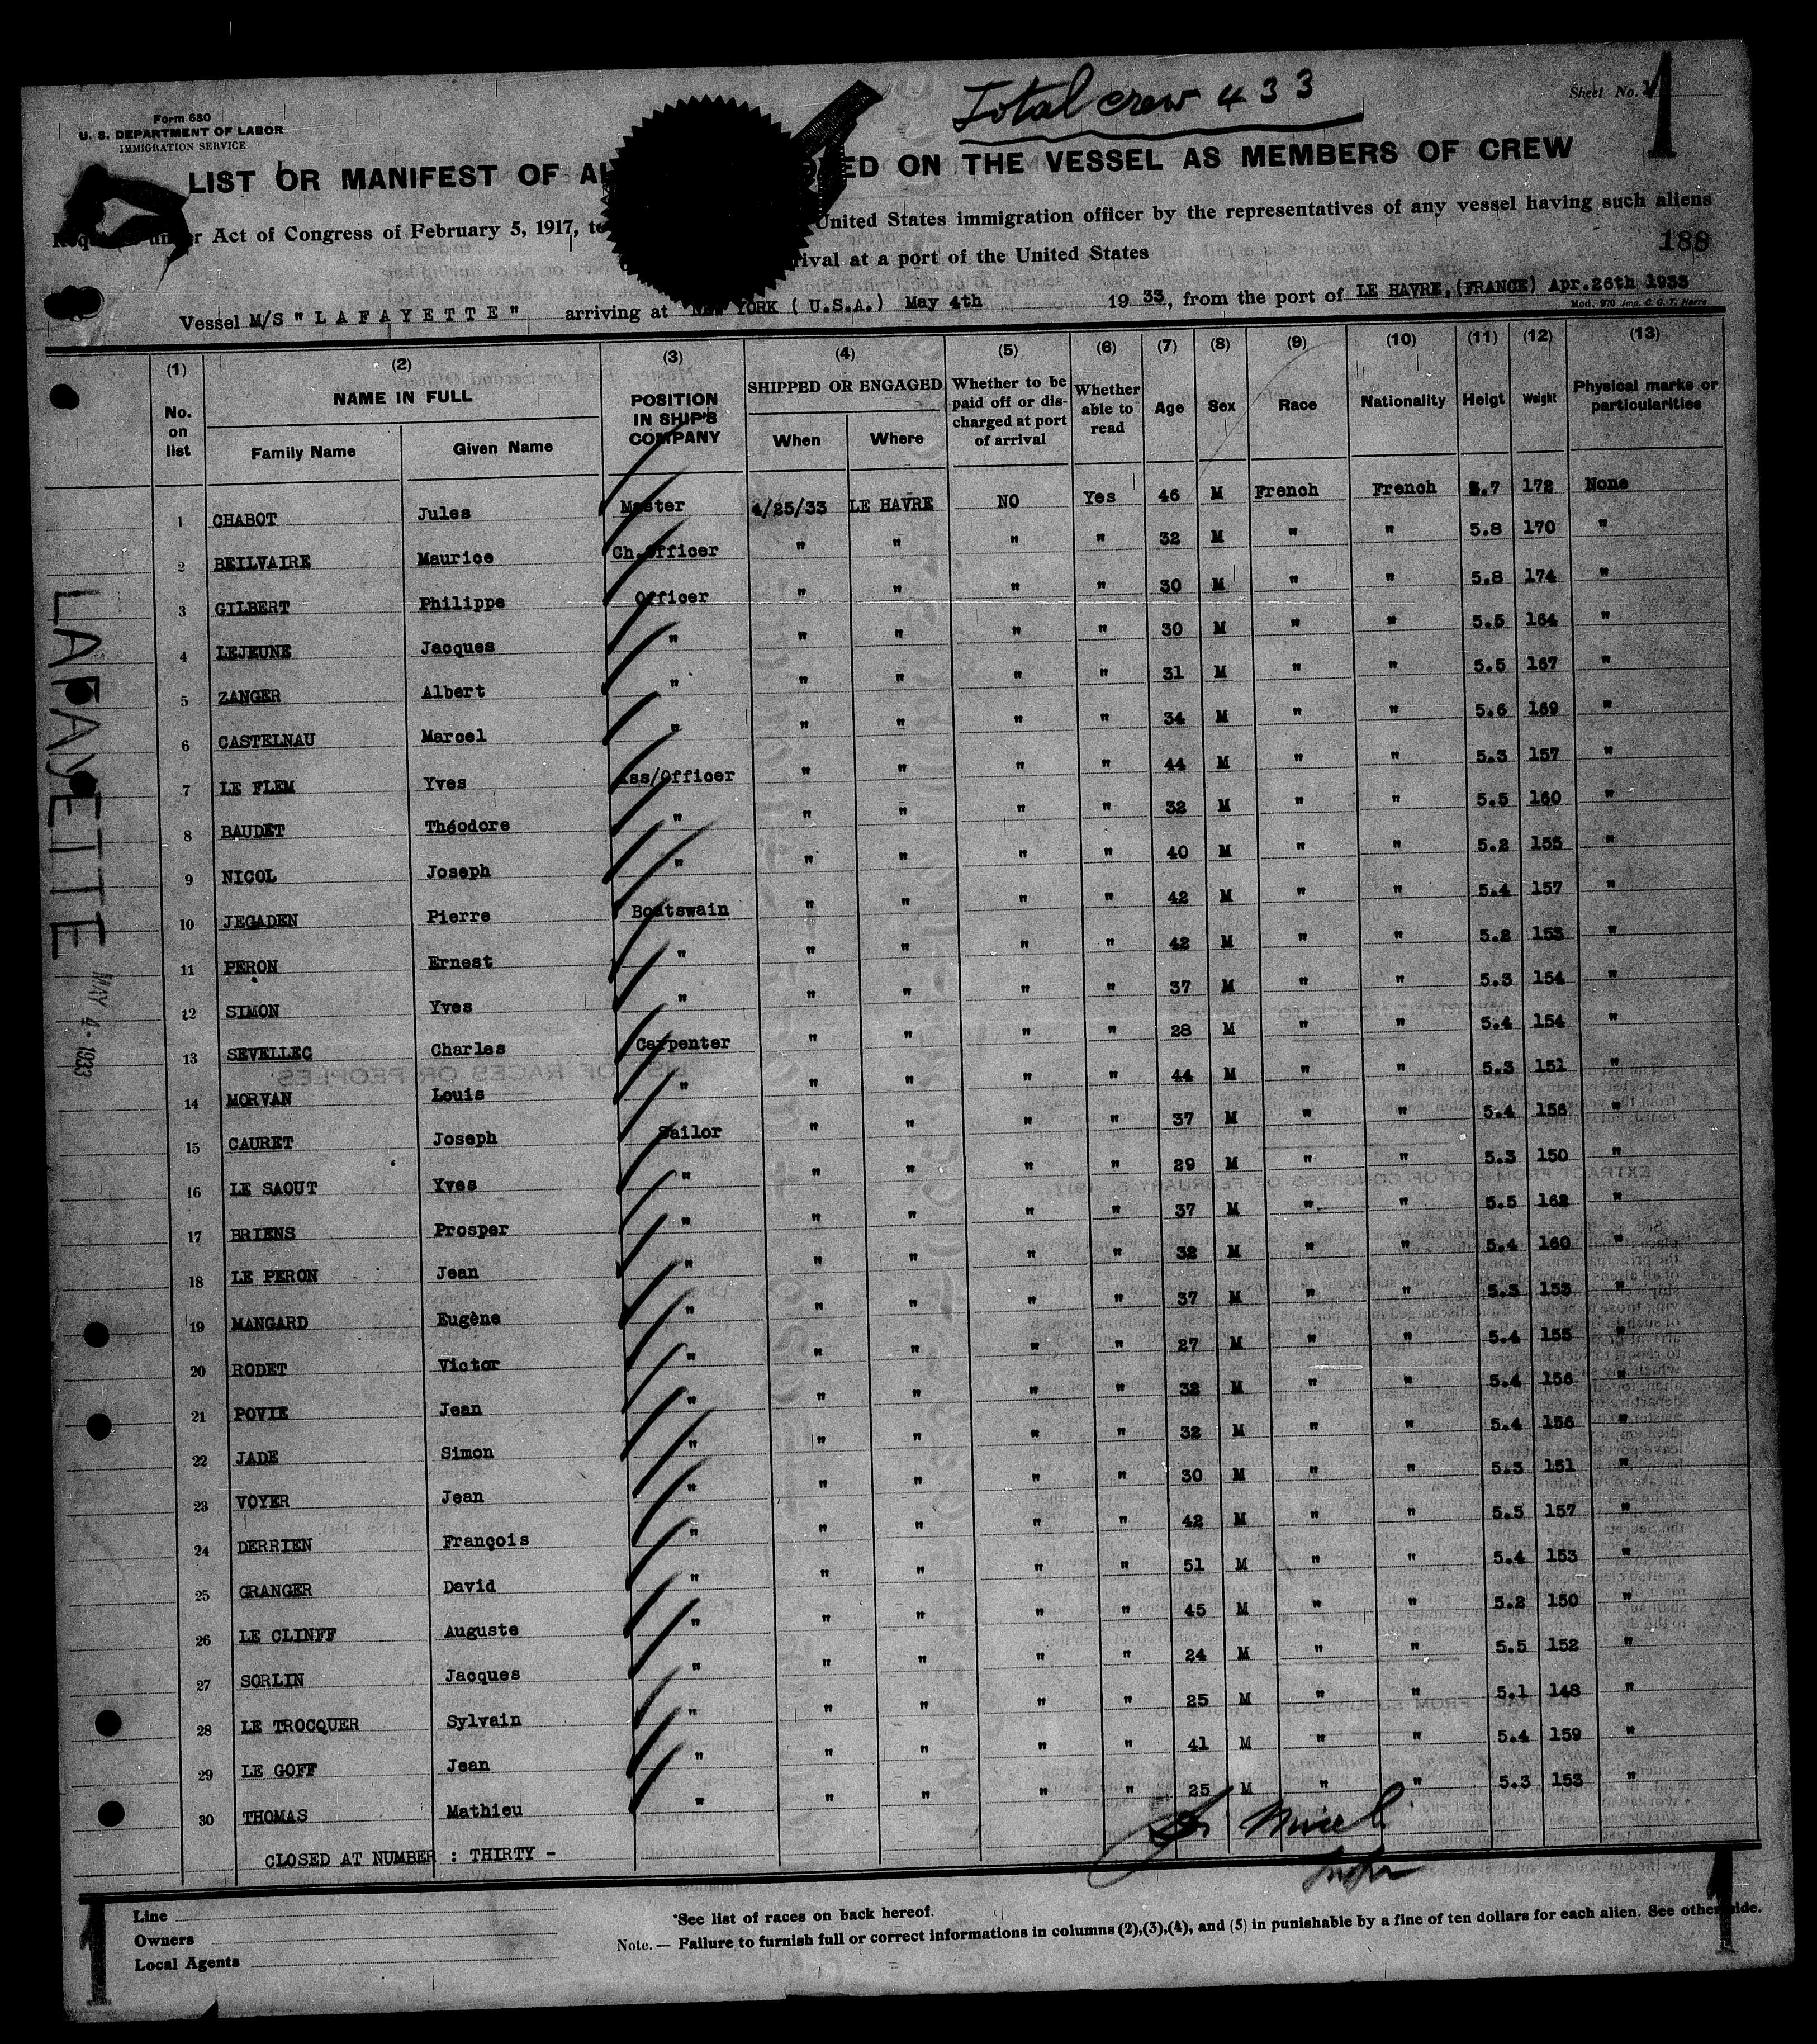 Total crew 433
Sheet No.
1
Form 680
U. S. DEPARTMENT OF LABOR
IMMIGRATION SERVICE
LIST OR MANIFEST OF ON THE VESSEL AS MEMBERS OF CREW
under Act of Congress of February 5, 1917, United States immigration officer by the representatives of any vessel having such aliens
at a port of the United States
188
Vessel M/S "LAFAYETTE" arriving at NEW YORK (U.S.A.) May 4th 1933, from the port of LE HAVRE, (FRANCE) Apr.26th 1933
Mod. 970 Imp. C. G. T. Havre
(1) (2) (3) (4) (5) (6) (7) (8) (9) (10) (11) (12) (13)
No. on list NAME IN FULL Family Name Given Name POSITION IN SHIP'S COMPANY SHIPPED OR ENGAGED When Where Whether to be paid off or discharged at port of arrival Whether able to read Age Sex Race Nationality Heigt Weight Physical marks or particularities
1 CHABOT Jules Master 4/25/33 LE HAVRE NO Yes 46 M French French 5.7 172 None
2 BEILVAIRE Maurice Ch.Officer " " " " 32 M " " 5.8 170 "
3 GILBERT Philippe Officer " " " " 30 M " " 5.8 174 "
4 LEJEUNE Jacques " " " " " 30 M " " 5.5 164 "
5 ZANGER Albert " " " " " 31 M " " 5.5 167 "
6 CASTELNAU Marcel " " " " " 34 M " " 5.6 169 "
7 LE FLEM Yves Ass/Officer " " " " 44 M " " 5.3 157 "
8 BAUDET Théodore " " " " " 32 M " " 5.5 160 "
9 NICOL Joseph " " " " " 40 M " " 5.2 155 "
10 JEGADEN Pierre Boatswain " " " " 42 M " " 5.4 157 "
11 PERON Ernest " " " " " 42 M " " 5.2 153 "
12 SIMON Yves " " " " " 37 M " " 5.3 154 "
13 SEVELLEC Charles Carpenter " " " " 28 M " " 5.4 154 "
14 MORVAN Louis " " " " " 44 M " " 5.3 151 "
15 CAURET Joseph Sailor " " " " 37 M " " 5.4 156 "
16 LE SAOUT Yves " " " " " 29 M " " 5.3 150 "
17 BRIENS Prosper " " " " " 37 M " " 5.5 162 "
18 LE PERON Jean " " " " " 32 M " " 5.4 160 "
19 MANGARD Eugène " " " " " 37 M " " 5.3 153 "
20 RODET Victor " " " " " 27 M " " 5.4 155 "
21 POVIE Jean " " " " " 32 M " " 5.4 156 "
22 JADE Simon " " " " " 32 M " " 5.4 156 "
23 VOYER Jean " " " " " 30 M " " 5.3 151 "
24 DERRIEN François " " " " " 42 M " " 5.5 157 "
25 GRANGER David " " " " " 51 M " " 5.4 153 "
26 LE CLINFF Auguste " " " " " 45 M " " 5.2 150 "
27 SORLIN Jacques " " " " " 24 M " " 5.5 152 "
28 LE TROCQUER Sylvain " " " " " 25 M " " 5.1 148 "
29 LE GOFF Jean " " " " " 41 M " " 5.4 159 "
30 THOMAS Mathieu " " " " " 25 M " " 5.3 153 "
CLOSED AT NUMBER : THIRTY -
LAFAYETTE
MAY 4 - 1933
Line
Owners
Local Agents
*See list of races on back hereof.
Note. — Failure to furnish full or correct informations in columns (2),(3),(4), and (5) in punishable by a fine of ten dollars for each alien. See other side.
1
1